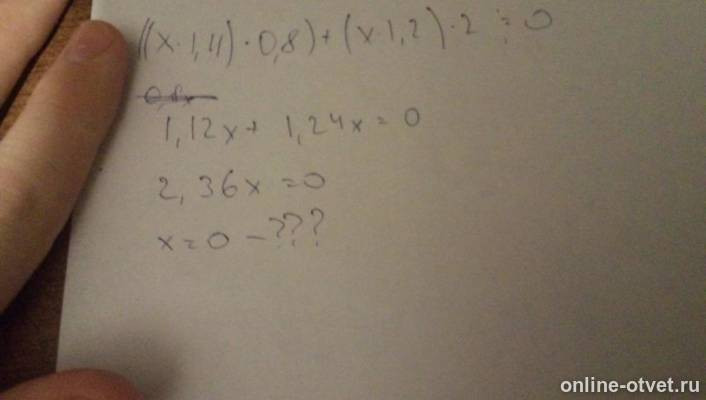 ((x·1,11)·0,8)+(x·1,2)·2=0
1,12x+ 1,24x=0
2,36x=0
x=0-???
online-otvet.ru